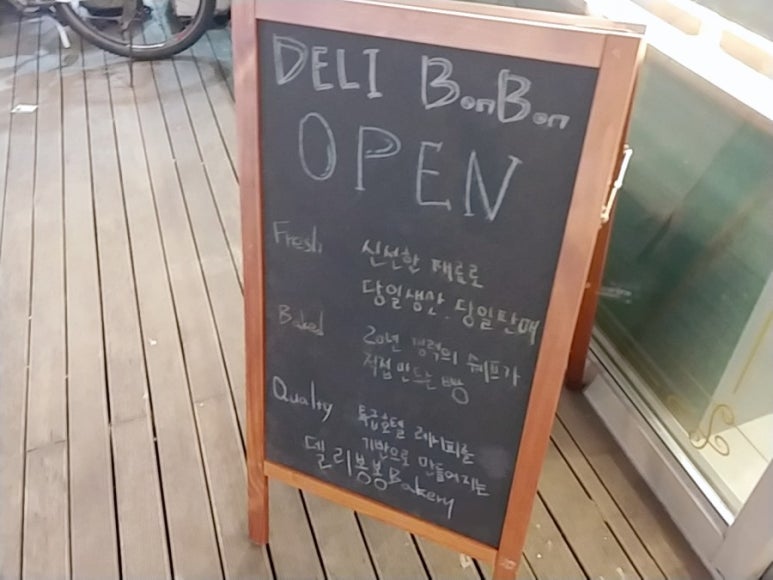 DELI BonBon
OPEN
Fresh 신선한 재료로
당일생산. 당일판매
Baked 20년 경력의 쉐프가
직접 만드는 빵
Quality 특급호텔 레시피를
기반으로 만들어지는
델리봉봉 Bakery